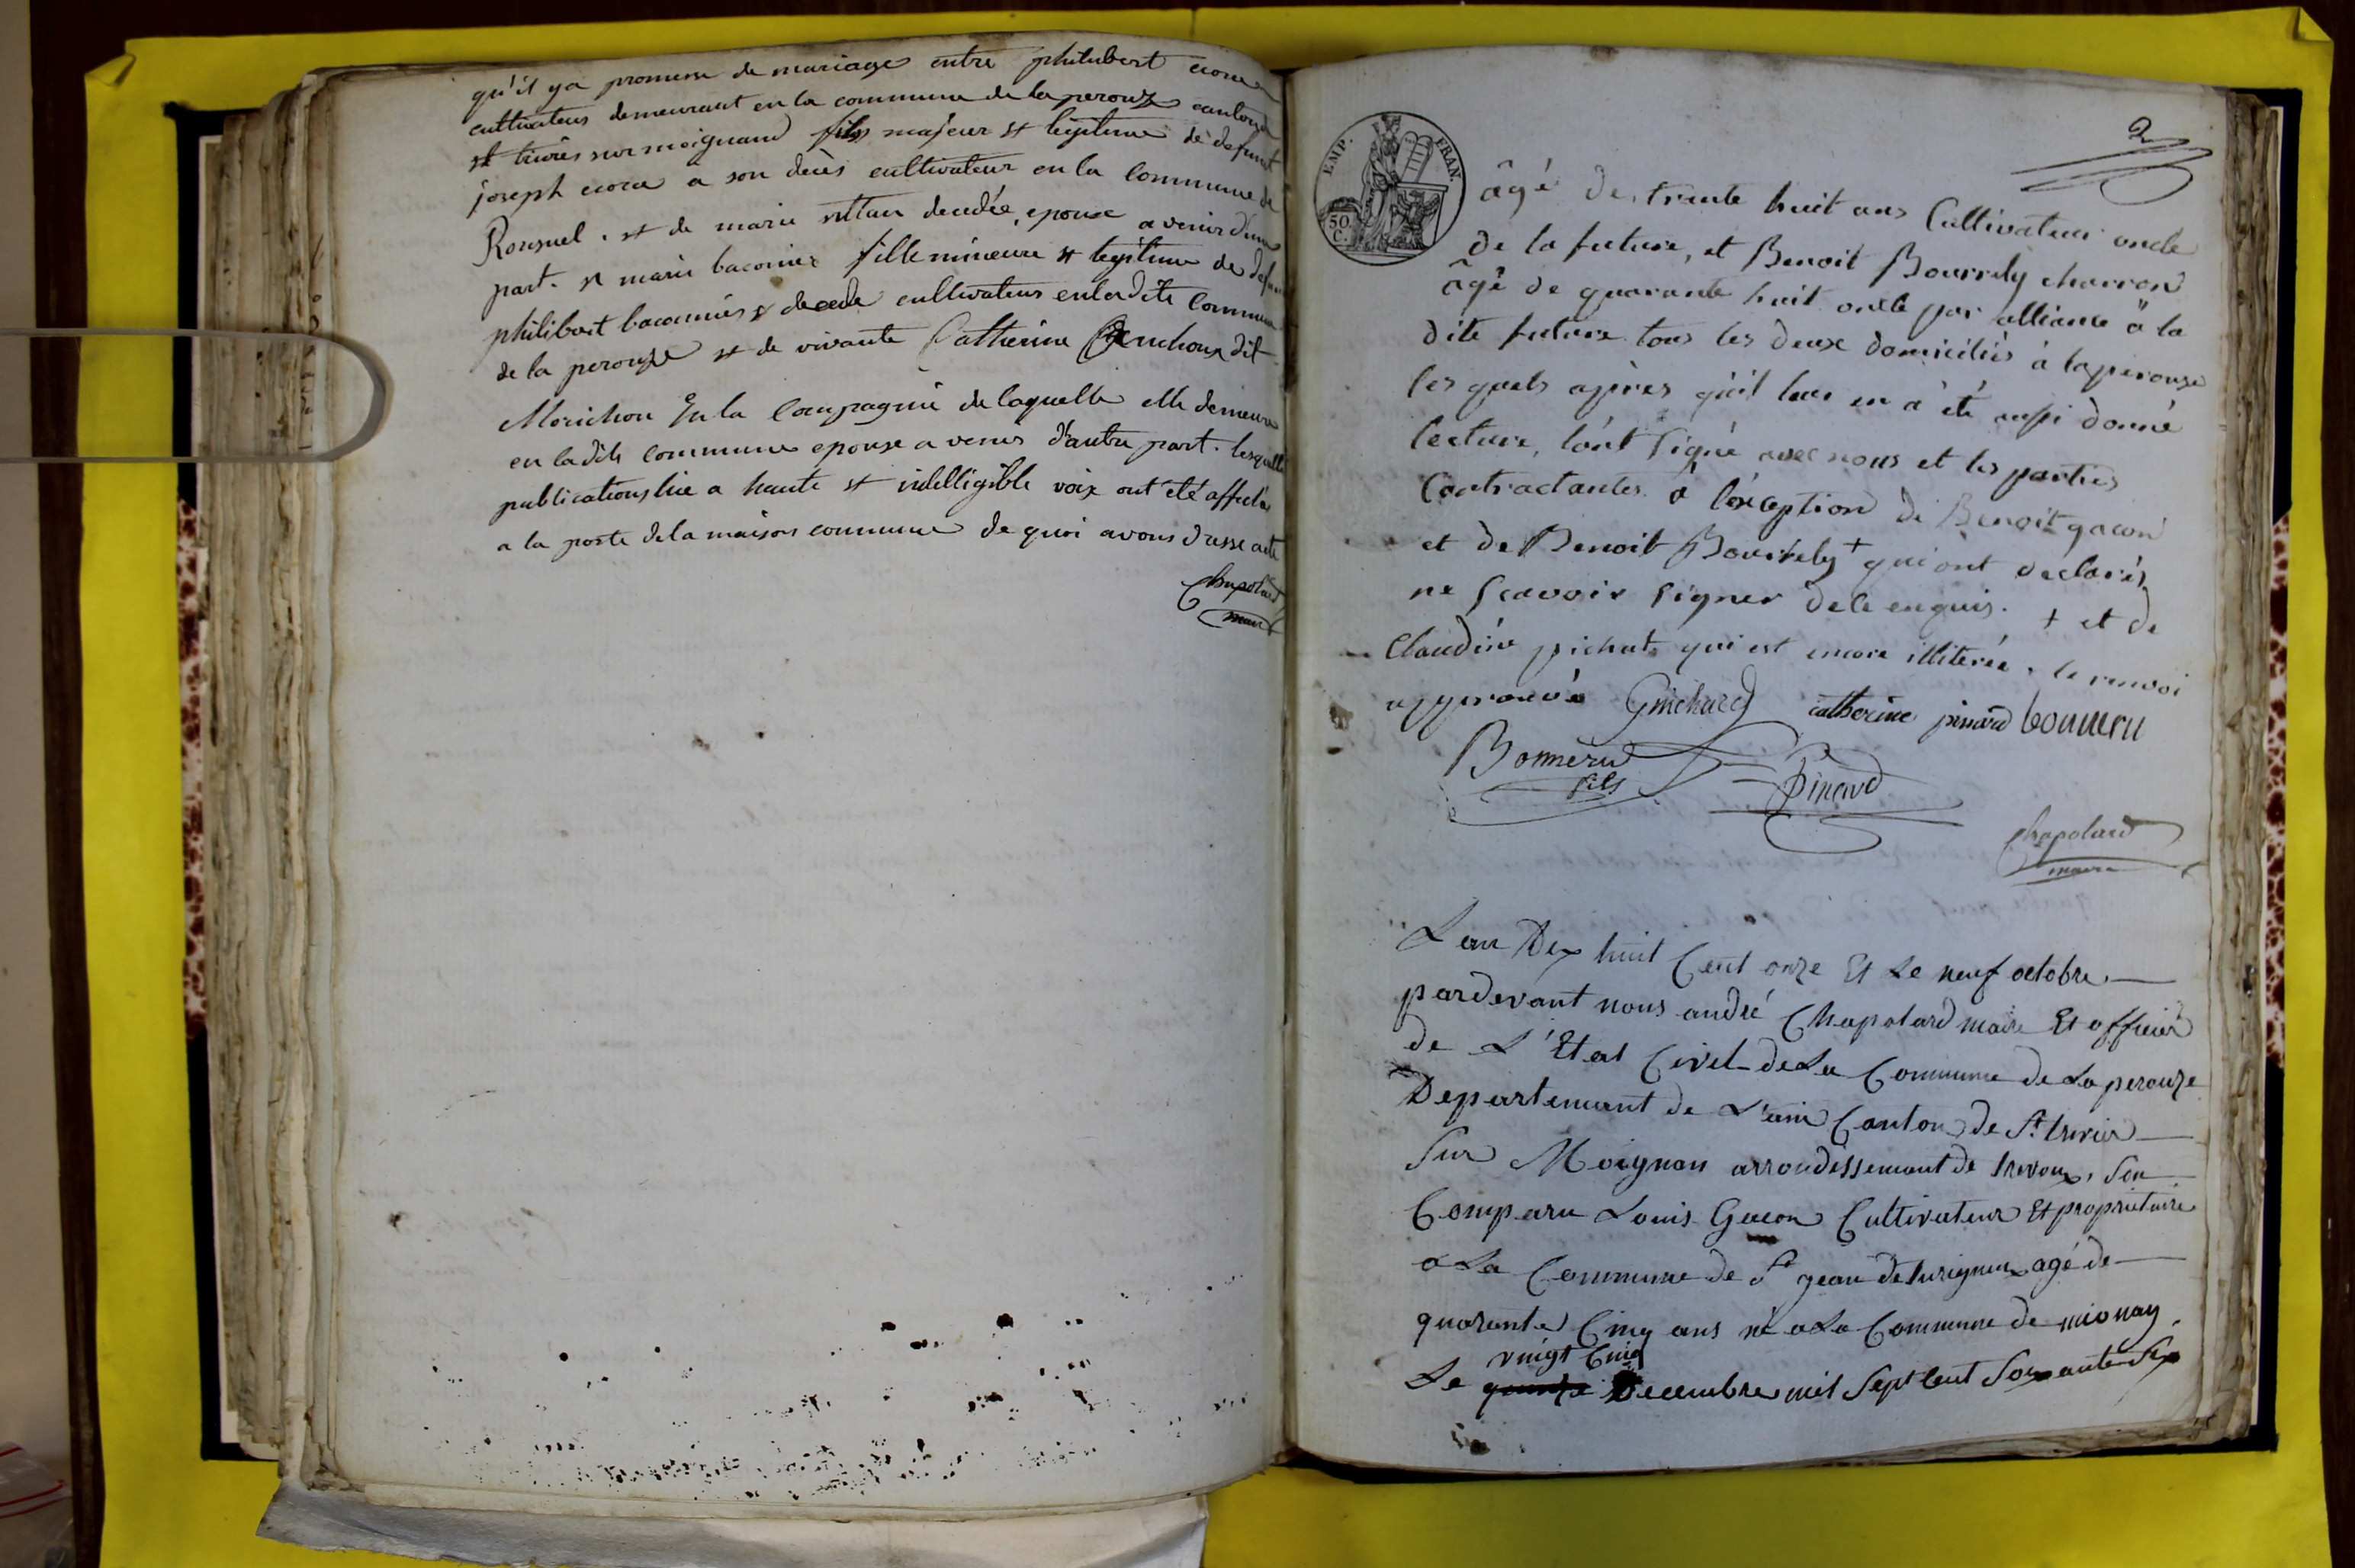 qu'il ya promesse de mariage entre philibert
cultivateur demeurant en la commune de la perouze canton
st trivies sur moignand fils majeur et legitime de defunt
joseph a son decès cultivateur en la commune de
et de marie decedée, epoux a venir d'une
part. et marie baconnier fille mineure et legitime de
philibert baconnier decede cultivateur en la dite commune
de la perouze et de vivante Catherine dit
Morichon En la Compagnie de laquelle elle demeure
en la dite commune epouse a venir d'autre part. lesquelles
publications lue a haute et intelligible voix ont été affichée
a la porte de la maison commune de quoi avons dressé acte
Chapolard
maire
2
EMP. FRAN.
50 C.
âgé de trente huit ans Cultivateur oncle
de la future, et Benoit Bourrely charron
âgé de quarante huit oncle par alliance à la
dite future tous les deux domiciliés à laperouze
les quels après qu'il leur en a été aussi donné
lecture, l'ont signé avec nous et les parties
Contractantes à l'exception de Benoit gacon
et de Benoit Bourrely + qui ont declarés
ne scavoir signer de ce enquis. + et de
Claudine pichat qui est encore illiterée. le renvoi
approuvé Guichard catherine pinard bonneru
Bonneru fils Pinard
Chapolard
maire
L'an Dix huit Cent onze Et Le neuf octobre
pardevant nous andré Chapolard maire Et officier
de L'Etat Civil de La Commune de La perouze
Departement de L'ain Canton de St. trivier
Sur Moignan arrondissement de trevoux, Son
Comparu Louis Gacon Cultivateur Et proprietaire
a La Commune de St jean de turigneux agé de
quarante Cinq ans né a La Commune de mionay
vingt Cinq
Le quinze Decembre mil Sept Cent Soixante Six